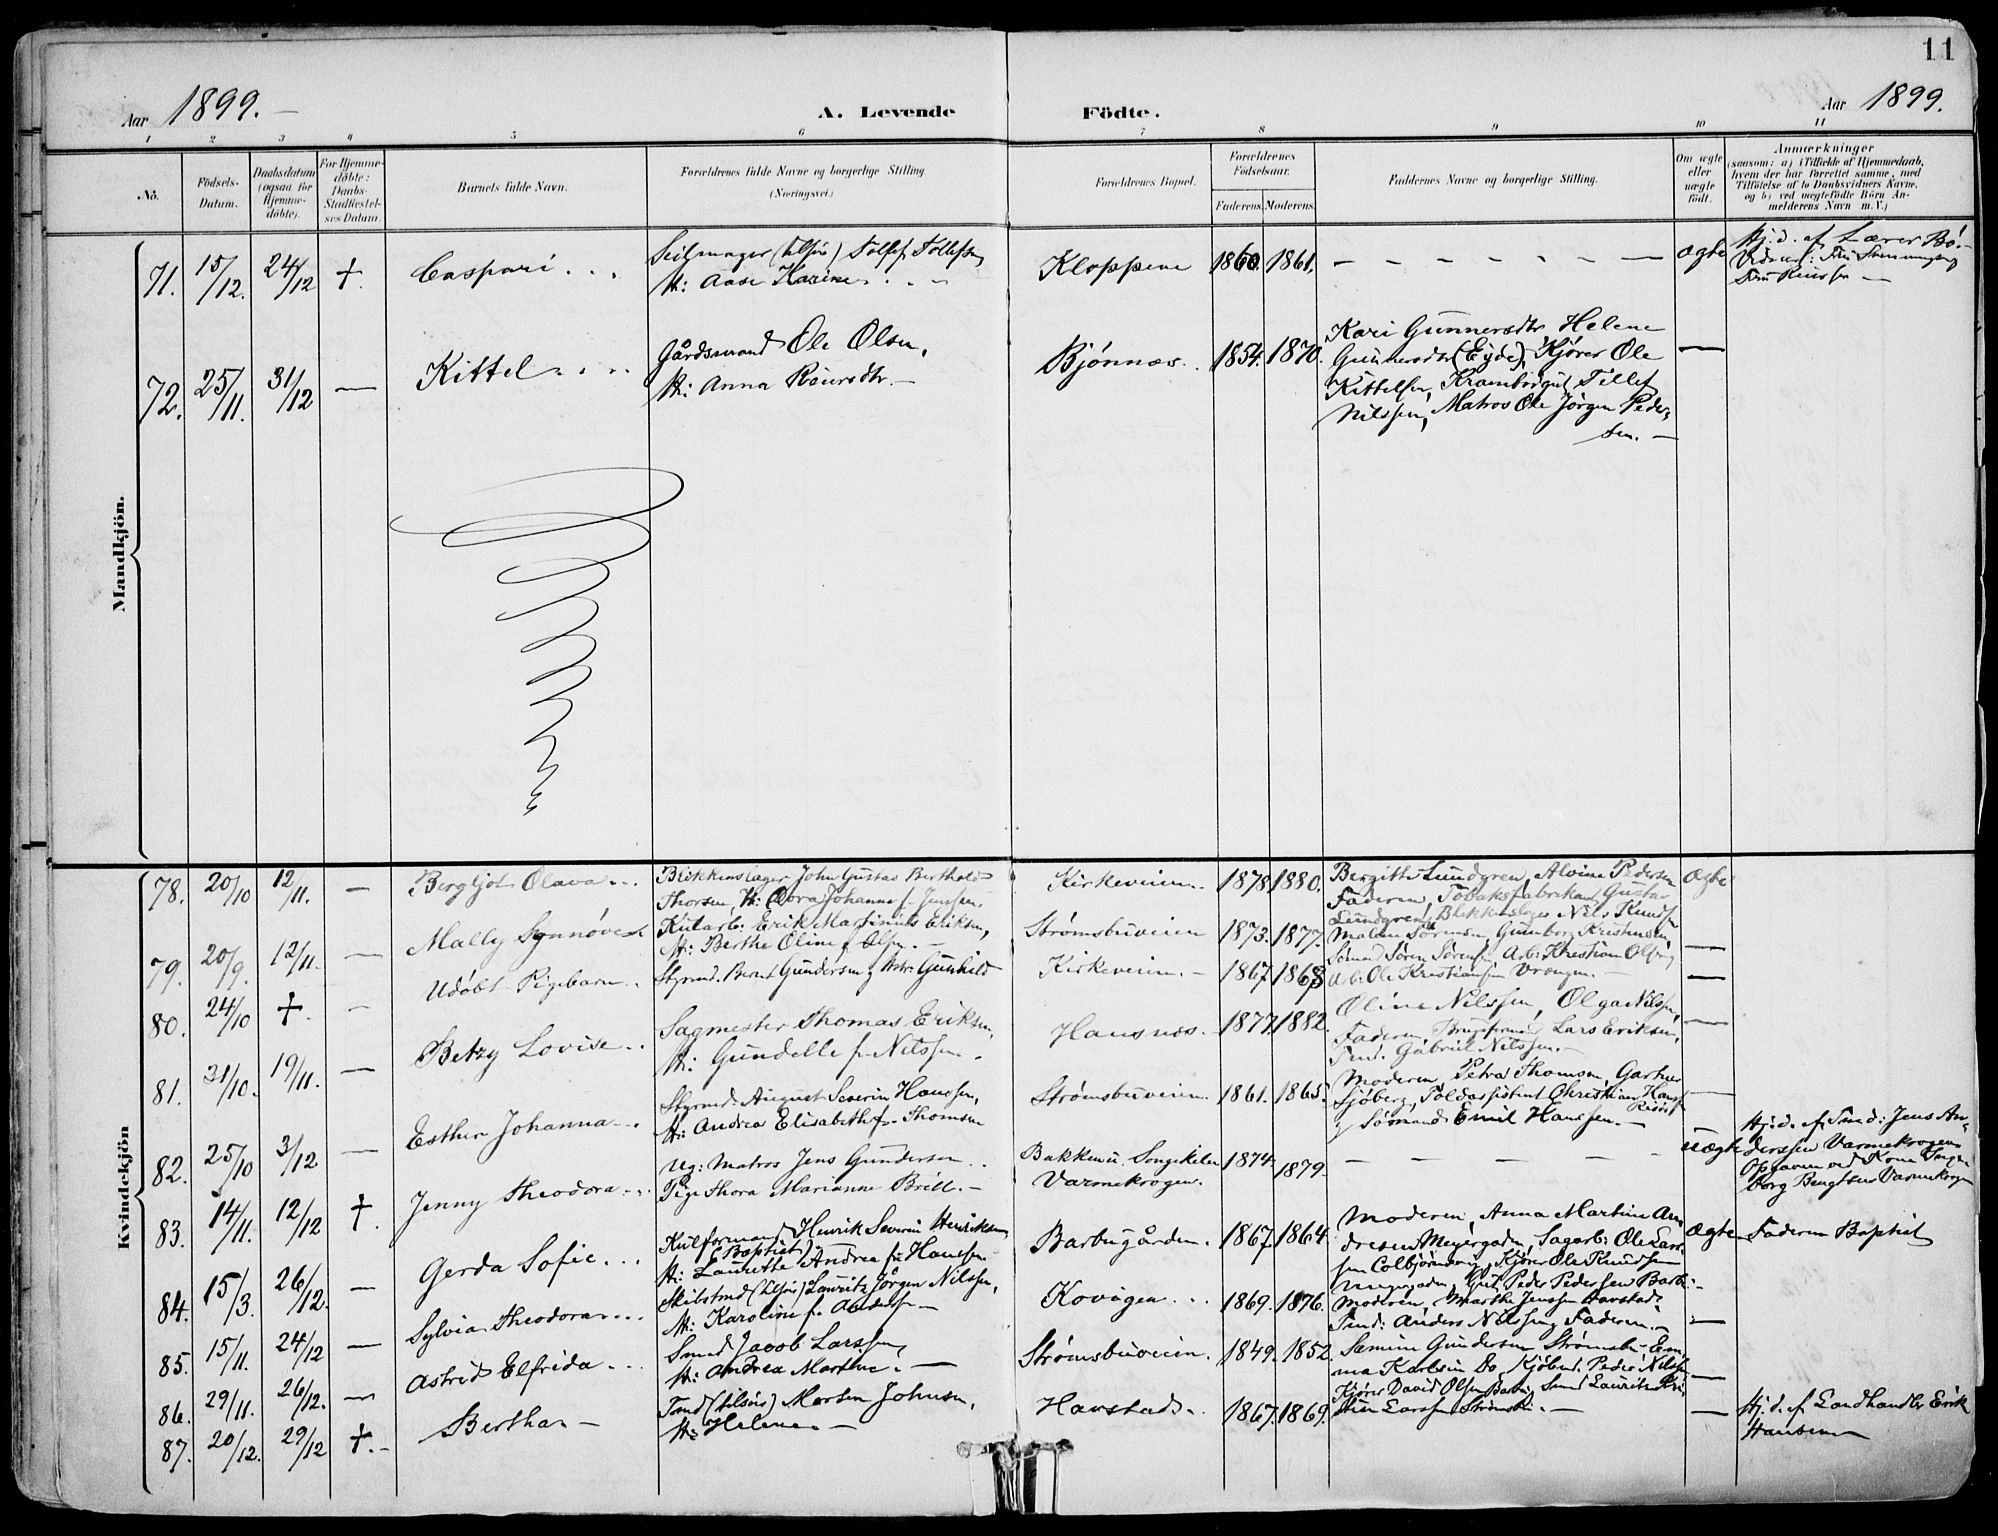 11
Aar 1899.
A. Levende Födte.
Aar 1899.
1 2 3 4 5 6 7 8 9 10 11
No.
Födsels-
Datum.
Daabsdatum
(ogsaa for
Hjemme-
döbte).
For Hjemme-
döbte:
Daabs-
Stadfæstel-
ses Datum.
Barnets fulde Navn.
Forældrenes fulde Navne og borgerlige Stilling
(Næringsvei.)
Forældrenes Bopæl.
Forældrenes
Födselsaar.
Faderens. Moderens.
Faddernes Navne og borgerlige Stilling.
Om ægte
eller
uægte
født.
Anmærkninger
(saasom: a) i Tilfælde af Hjemmedaab,
hvem der har forrettet samme, med
Tilföielse af to Daabsvidners Navne,
og b) ved uægtefödte Börn An-
melderens Navn m. V.)
Mandkjön.
71. 15/12. 24/12 †. Caspari
Seilmager (tilsjøs) Tollef Tollefsen
H: Aase Karine
Kloppene 1860. 1861. ægte
Hj.d. af Lærer Bö.
72. 25/11. 31/12 — Kittel
Gårdsmand Ole Olsen,
H: Anna Roarsdtr. —
Bjønnæs. 1854. 1870.
Kari Gunnersdtr, Helene
Gunnersdtr (Eyde), Kjører Ole
Kittelsen, Krambodgut Tellef
Nilssen, Matros Ole Jörgen Peder-
sen. —
Kvindekjön
78. 20/10 12/11. — Bergljot Olava
Blikkenslager John Gustav Berthold
Thorsen, H: Dora Johanne f. Jenssen.
Kirkeveien. 1878. 1880.
Bergitte Lundgren, Alvine Pedersen
Faderen, Tobaksfabrikør Gustav
Lundgren, Blikkenslager Nils Knudsen
ægte
79. 20/9. 12/11. — Mally Synnøve
Kularb: Erik Martinius Eriksen,
H: Berthe Oline f. Olsen. —
Strømsbuveien 1873. 1877.
Malene Sörensen, Gunborg Kristensen
Sömand Sören Sörensen, Arb: Kristian Olsen,
Arb: Ole Kristiansen Vrengen. —
80. 24/10 †. — Udöbt Pigebarn
Styrmd. Bernt Gundersen og Hstr Gunhild
Kirkeveien. — 1867. 1868
81. 31/10. 19/11. — Betzy Lovise
Sagmester Thomas Eriksen,
H: Gundelle f. Nilssen.
Hansnæs. 1877. 1882.
Oline Nilssen, Olga Nilssen,
Faderen, Brugsformand Lars Eriksen,
Tmd. Gabriel Nilssen. —
82. 25/10 3/12 — Esther Johanna
Styrmd. August Severin Hanssen,
H: Andrea Elisabeth f. Thomsen
Strømsbuveien. 1861. 1865.
Moderen, Petra Thomsen, Gartner
Sjöberg, Toldassistent Christian Hanssen
Risör, Sömand Emil Hanssen. —
83. 14/11. 12/12 †. Jenny Theodora
Ug: Matros Jens Gundersen
Pige Thora Marianne Brill. —
Bakkemu. Songekilen
Varmekrogen.
1874. 1879. uægte
Hj.d. af Tmd: Jens An-
derssen Varmekrogen
Opgaven ved Kone Inge-
borg Bengtsen Varmekrogen
84. 15/3. 26/12. — Gerda Sofie
Kulformand Henrik Severin Henriksen
(Baptist)
H: Laurette Andrea f. Hanssen
Barbugården. 1867. 1864.
Moderen, Anna Martine An-
dresen Meyergaden, Sagarb: Ole Lars-
sen Colbjørnsvig, Kjører Ole Knudsen
Meyergaden, Gut Peder Pedersen Barbu
ægte Faderen Baptist
85. 15/11. 24/12 — Sylvia Theodora
Skibstmd (tilsjøs) Lauritz Jörgen Nilssen,
H: Karoline f. Anderssen —
Kovigen. 1869. 1876.
Moderen, Marthe Jenssen Havstad,
Tmd: Anders Nilssen, Faderen. —
86. 29/11. 26/12. — Astrid Elfrida
Smed Jacob Larssen,
H: Andrea Marthe. —
Strømsbuveien. 1849. 1852.
Samine Gundersen Strømsbu, Em-
ma Karlsen Do, Kjöbmd. Peder Nilssen
Kjører David Olsen Barbu, Smed Lauritz Kri-
stian Larssen Strømsbu. —
87. 20/12. 29/12 †. — Bertha —
Tmd (tilsjøs) Morten Johnsen,
H: Helene —
Havstad. 1867. 1869. —
Hj.d. af Landhandler Erik
Hansen